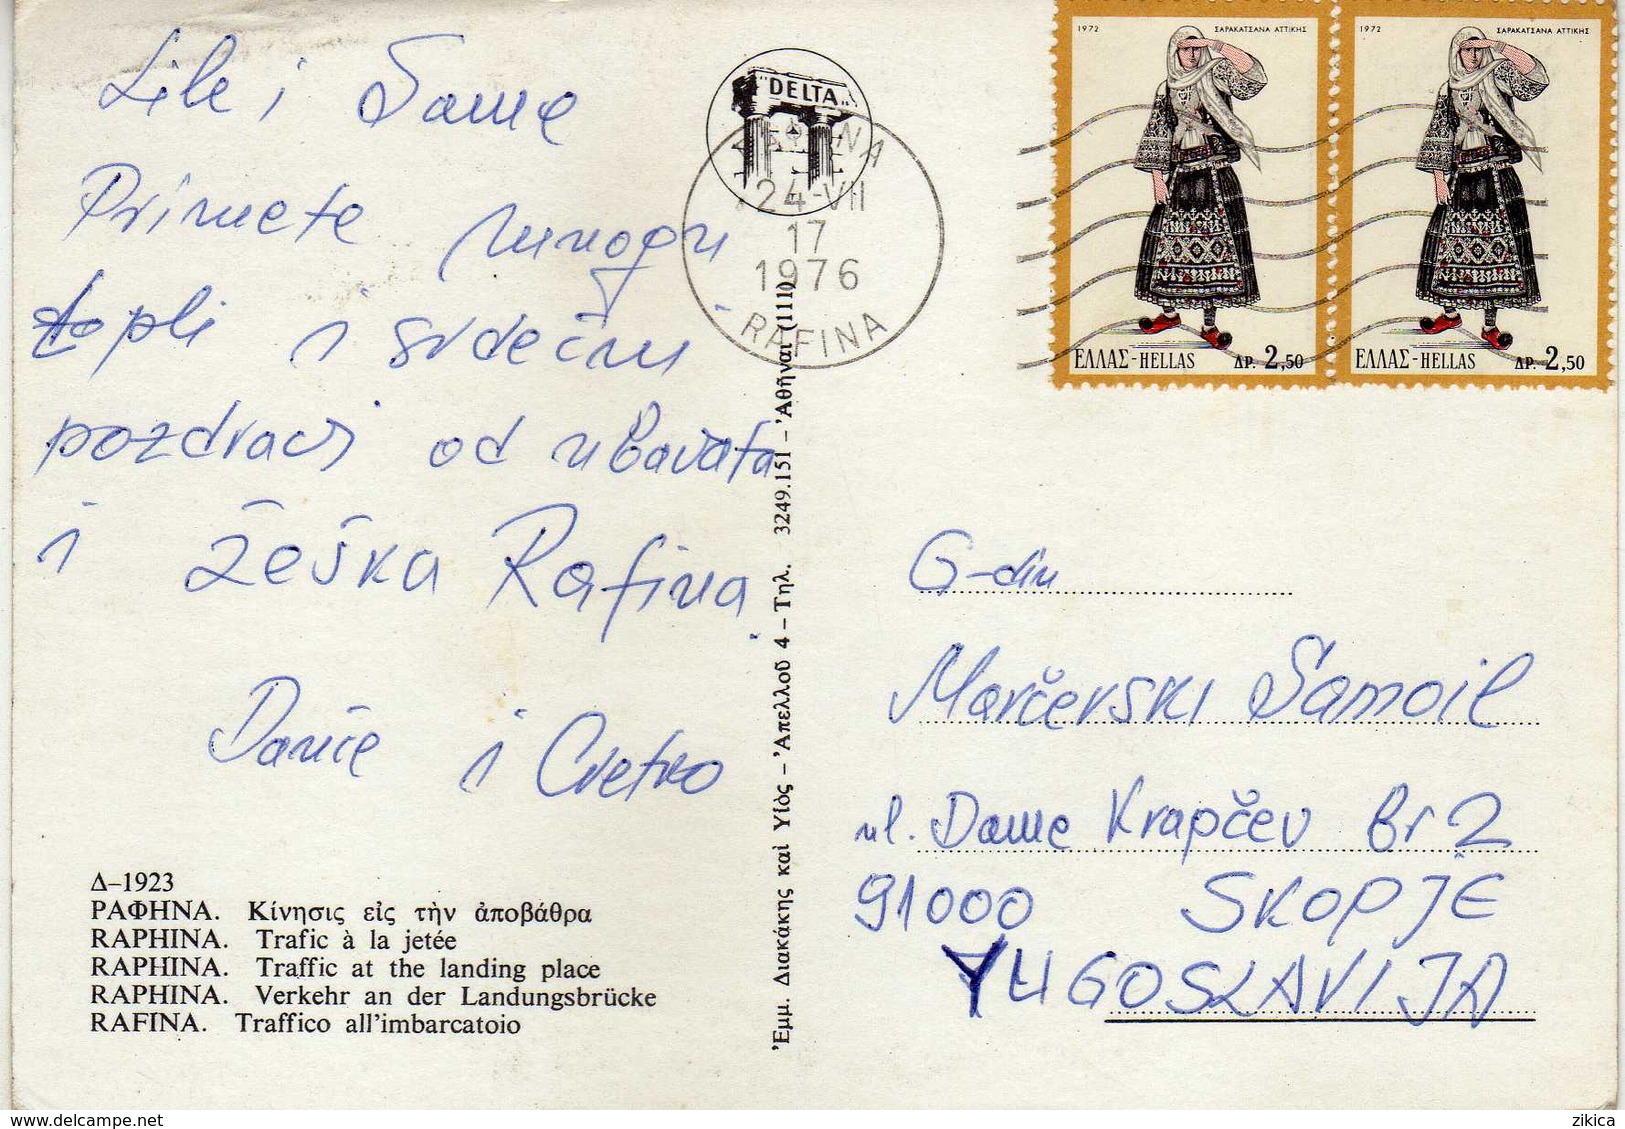 Lile i Same
Primete mnogu
topli i srdečni
pozdravi od ubavata
i žeška Rafina.
Daniče i Cvetko
Δ–1923
ΡΑΦΗΝΑ. Κίνησις εἰς τὴν ἀποβάθρα
RAPHINA. Trafic à la jetée
RAPHINA. Traffic at the landing place
RAPHINA. Verkehr an der Landungsbrücke
RAFINA. Traffico all'imbarcatoio
"DELTA"
ΡΑΦΗΝΑ
24-VII
17
1976
RAFINA
Ἐμμ. Διακάκης καὶ Υἱὸς – Ἀπελλοῦ 4 – Τηλ. 3249.151 – Ἀθῆναι (111)
1972 ΣΑΡΑΚΑΤΣΑΝΑ ΑΤΤΙΚΗΣ
ΕΛΛΑΣ-HELLAS ΔΡ. 2,50
1972 ΣΑΡΑΚΑΤΣΑΝΑ ΑΤΤΙΚΗΣ
ΕΛΛΑΣ-HELLAS ΔΡ. 2,50
G-din
Marčevski Samoil
ul. Dame Krapčev Br 2
91000 SKOPJE
YUGOSLAVIJA
zikica